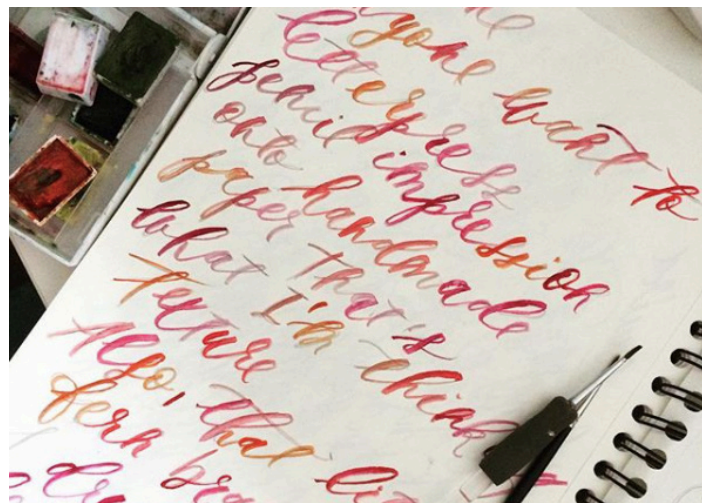 yone want to
letterpress
pencil impression
onto handmade
paper that's
what I'm think
Texture
Also, that li
fern bra